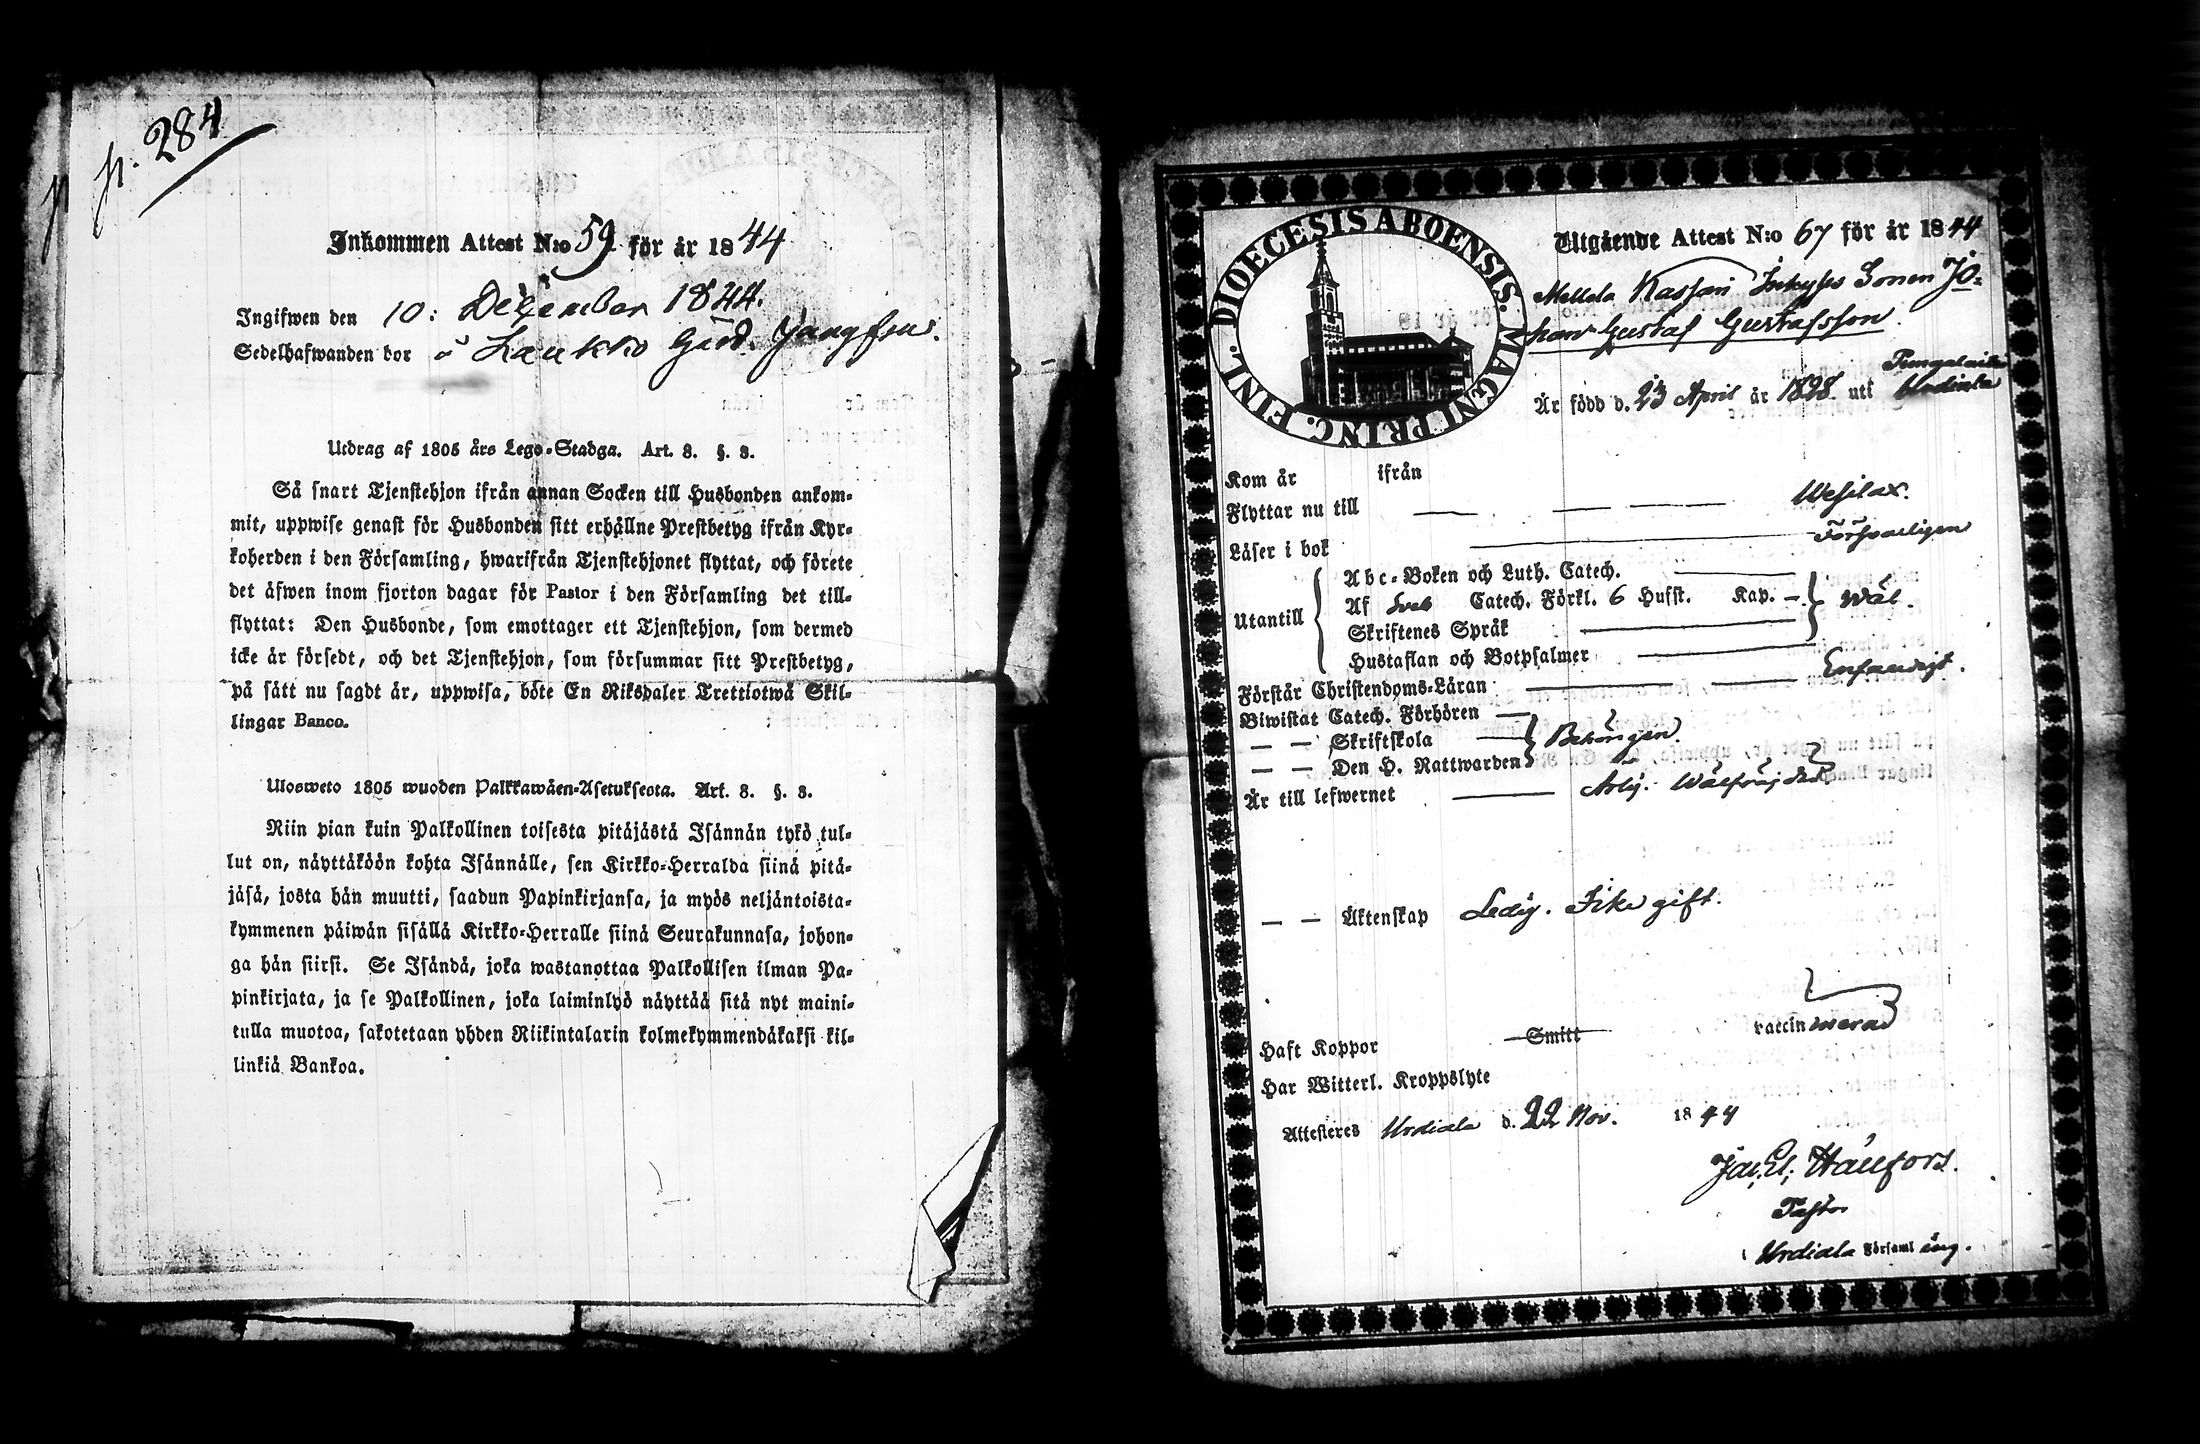 p. 284
Inkommen Attest N:o 59 för år 1844
Ingifwen den 10: December 1844.
Sedelhafwanden bor å Laukko Gård. Jungfru.
Utdrag af 1805 års Lego-Stadga. Art. 8. §. 3.
Så snart Tjenstehjon ifrån annan Socken till Husbonden ankom-
mit, uppwise genast för Husbonden sitt erhållne Prestbetyg ifrån Kyr-
koherden i den Församling, hwarifrån Tjenstehjonet flyttat, och förete
det äfwen inom fjorton dagar för Pastor i den Församling det till-
flyttat: Den Husbonde, som emottager ett Tjenstehjon, som dermed
icke är försedt, och det Tjenstehjon, som försummar sitt Prestbetyg,
på sätt nu sagdt är, uppwisa, böte En Riksdaler Trettiotwå Skil-
lingar Banco.
Ulosweto 1805 wuoden Palkkawäen-Asetuksesta. Art. 8. §. 3.
Niin pian kuin Palkollinen toisesta pitäjästä Isännän tykö tul-
lut on, näyttäköön kohta Isännälle, sen Kirkko-Herralda siinä pitä-
jäsä, josta hän muutti, saadun Papinkirjansa, ja myös neljäntoista-
kymmenen päiwän sisällä Kirkko-Herralle siinä Seurakunnasa, johon-
ga hän siirsi. Se Isändä, joka wastanottaa Palkollisen ilman Pa-
pinkirjata, ja se Palkollinen, joka laiminlyö näyttää sitä nyt maini-
tulla muotoa, sakotetaan yhden Riikintalarin kolmekymmendäkaksi kil-
linkiä Bankoa.
DIOECESIS ABOENSIS. MAGNI PRINC. FINL.
Utgående Attest N:o 67 för år 1844
Mellola Kassari Inhyses Sonen Jo-
han Gustaf Gustafsson.
Är född d. 23 April år 1828. uti Urdiala
Kom år ifrån
Flyttar nu till Wesilax.
Läser i bok Försvarligen
Utantill
Abc-Boken och Luth. Catech.
Af Sveb Catech. Förkl. 6 Husst. Kap. Wäl.
Skriftenes Språk
Hustaflan och Botpsalmer
Förstår Christendoms-Läran Enfaldigt.
Biwistat Catech. Förhören
— — Skriftskola Behörigen.
— — Den H. Nattwarden
Är till lefwernet Ärlig. Wälfräjdad.
— — Äktenskap Ledig. Icke gift.
Haft Koppor Smitt vaccinnerad
Har Witterl. Kroppslyte
Attesteres Urdiala d. 22 Nov. 1844
Jac. El. Hällfors.
Pastor
i Urdiala Församling.